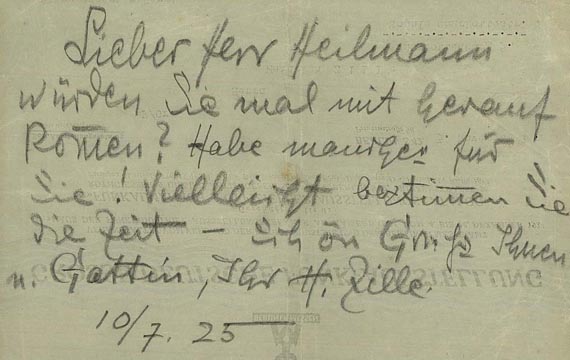 Lieber Herr Heilmann
würden Sie mal mit herauf
kom̅en? Habe manches für
Sie! Vielleicht bestim̅en Sie
die Zeit – Schön Gruß Ihnen
u. Gattin, Ihr H. Zille.
10/7. 25